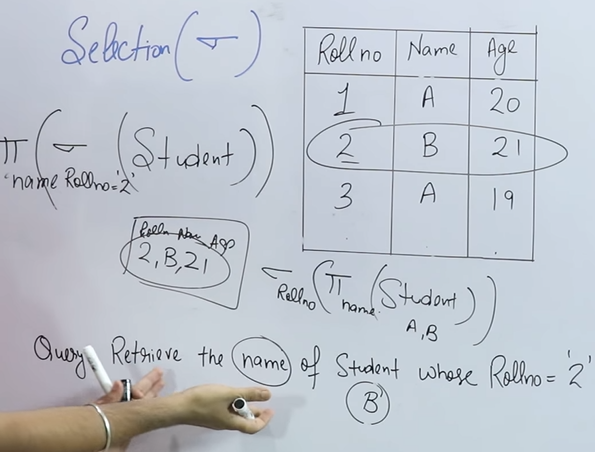 Selection (σ)
Rollno Name Age
1 A 20
2 B 21
3 A 19
π name (σ Rollno='2' (Student))
Rolln Nam Age
2, B, 21
σ Rollno (π name (Student))
A, B
Query Retrieve the name of Student whose Rollno = '2'
B